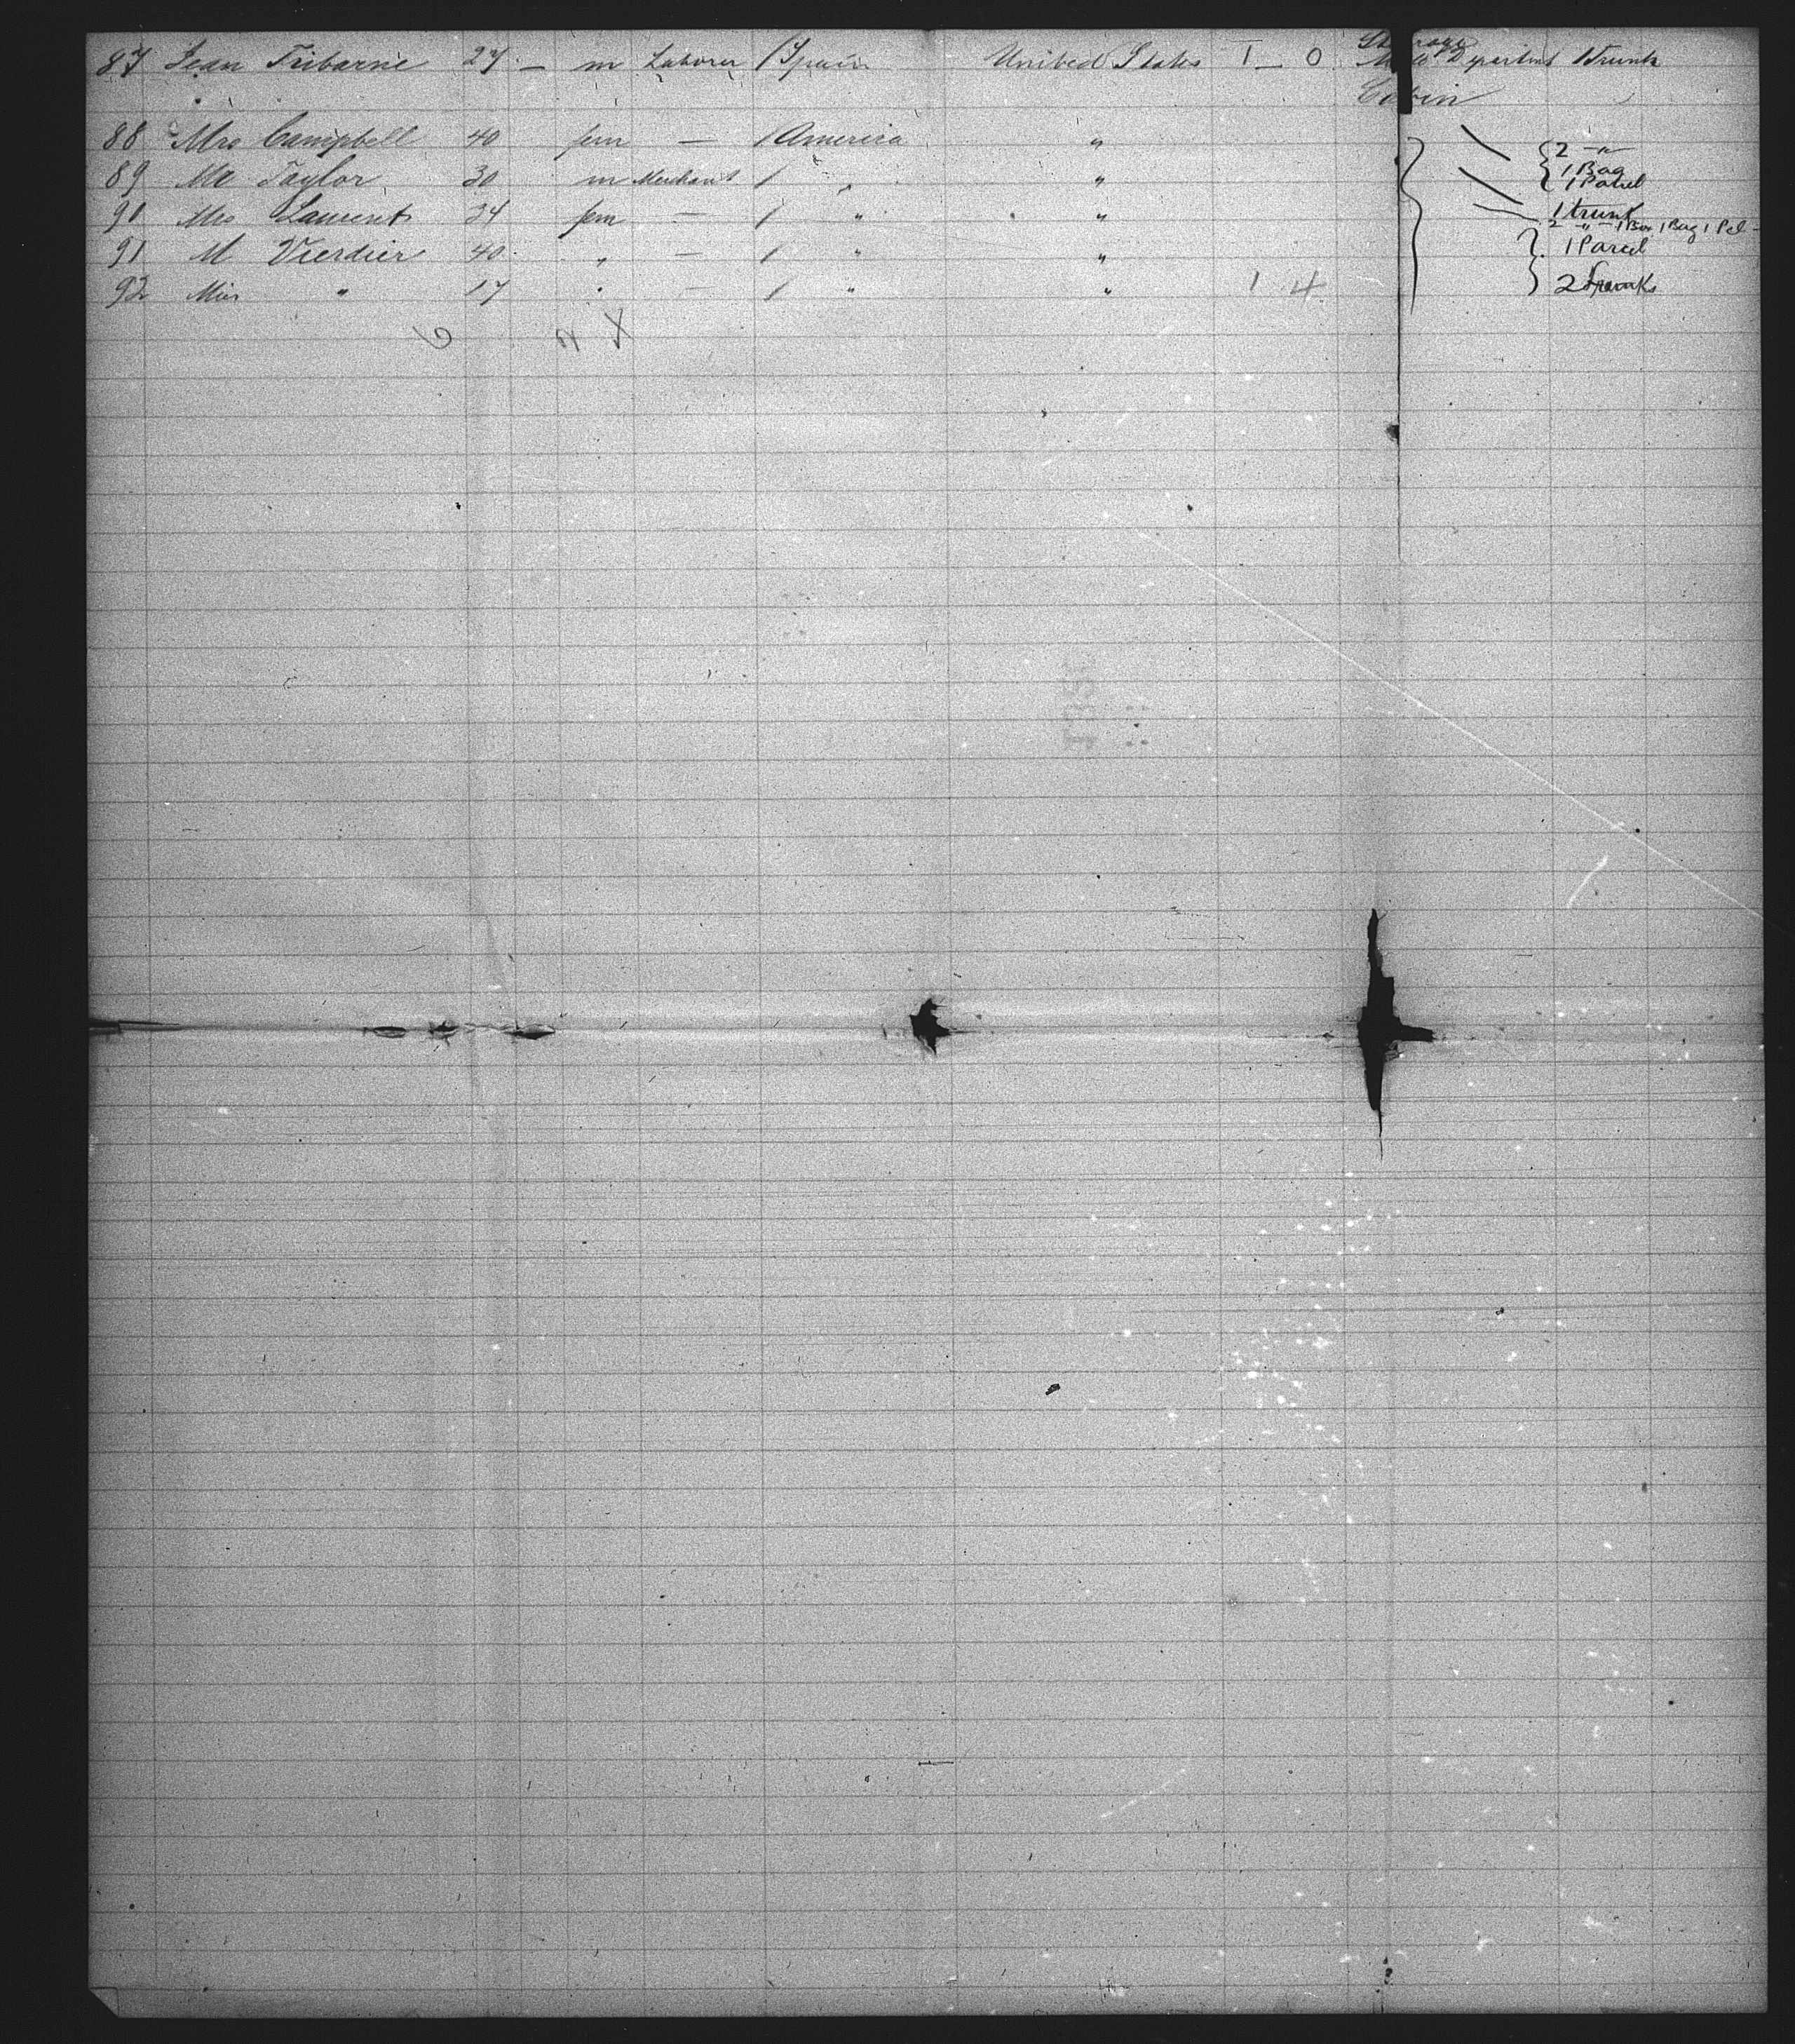 87 Jean Iribarne 27 — m Laborer / Spain United States 1 — 0 Male Departmt 1 Trunk
Cabin
88 Mrs Campbell 40 fem — / America " 2 — " —
89 Mr Taylor 30 m Merchant / " " 1 Bag
1 Parcel
90 Mrs Laurent 34 fem — / " " 1 trunk
2 — " — 1 Box 1 Bag 1 Pcl —
91 M Verdier 40 " — / " " 1 Parcel
92 Miss " 17 " — / " " 1 4 2 Trunks